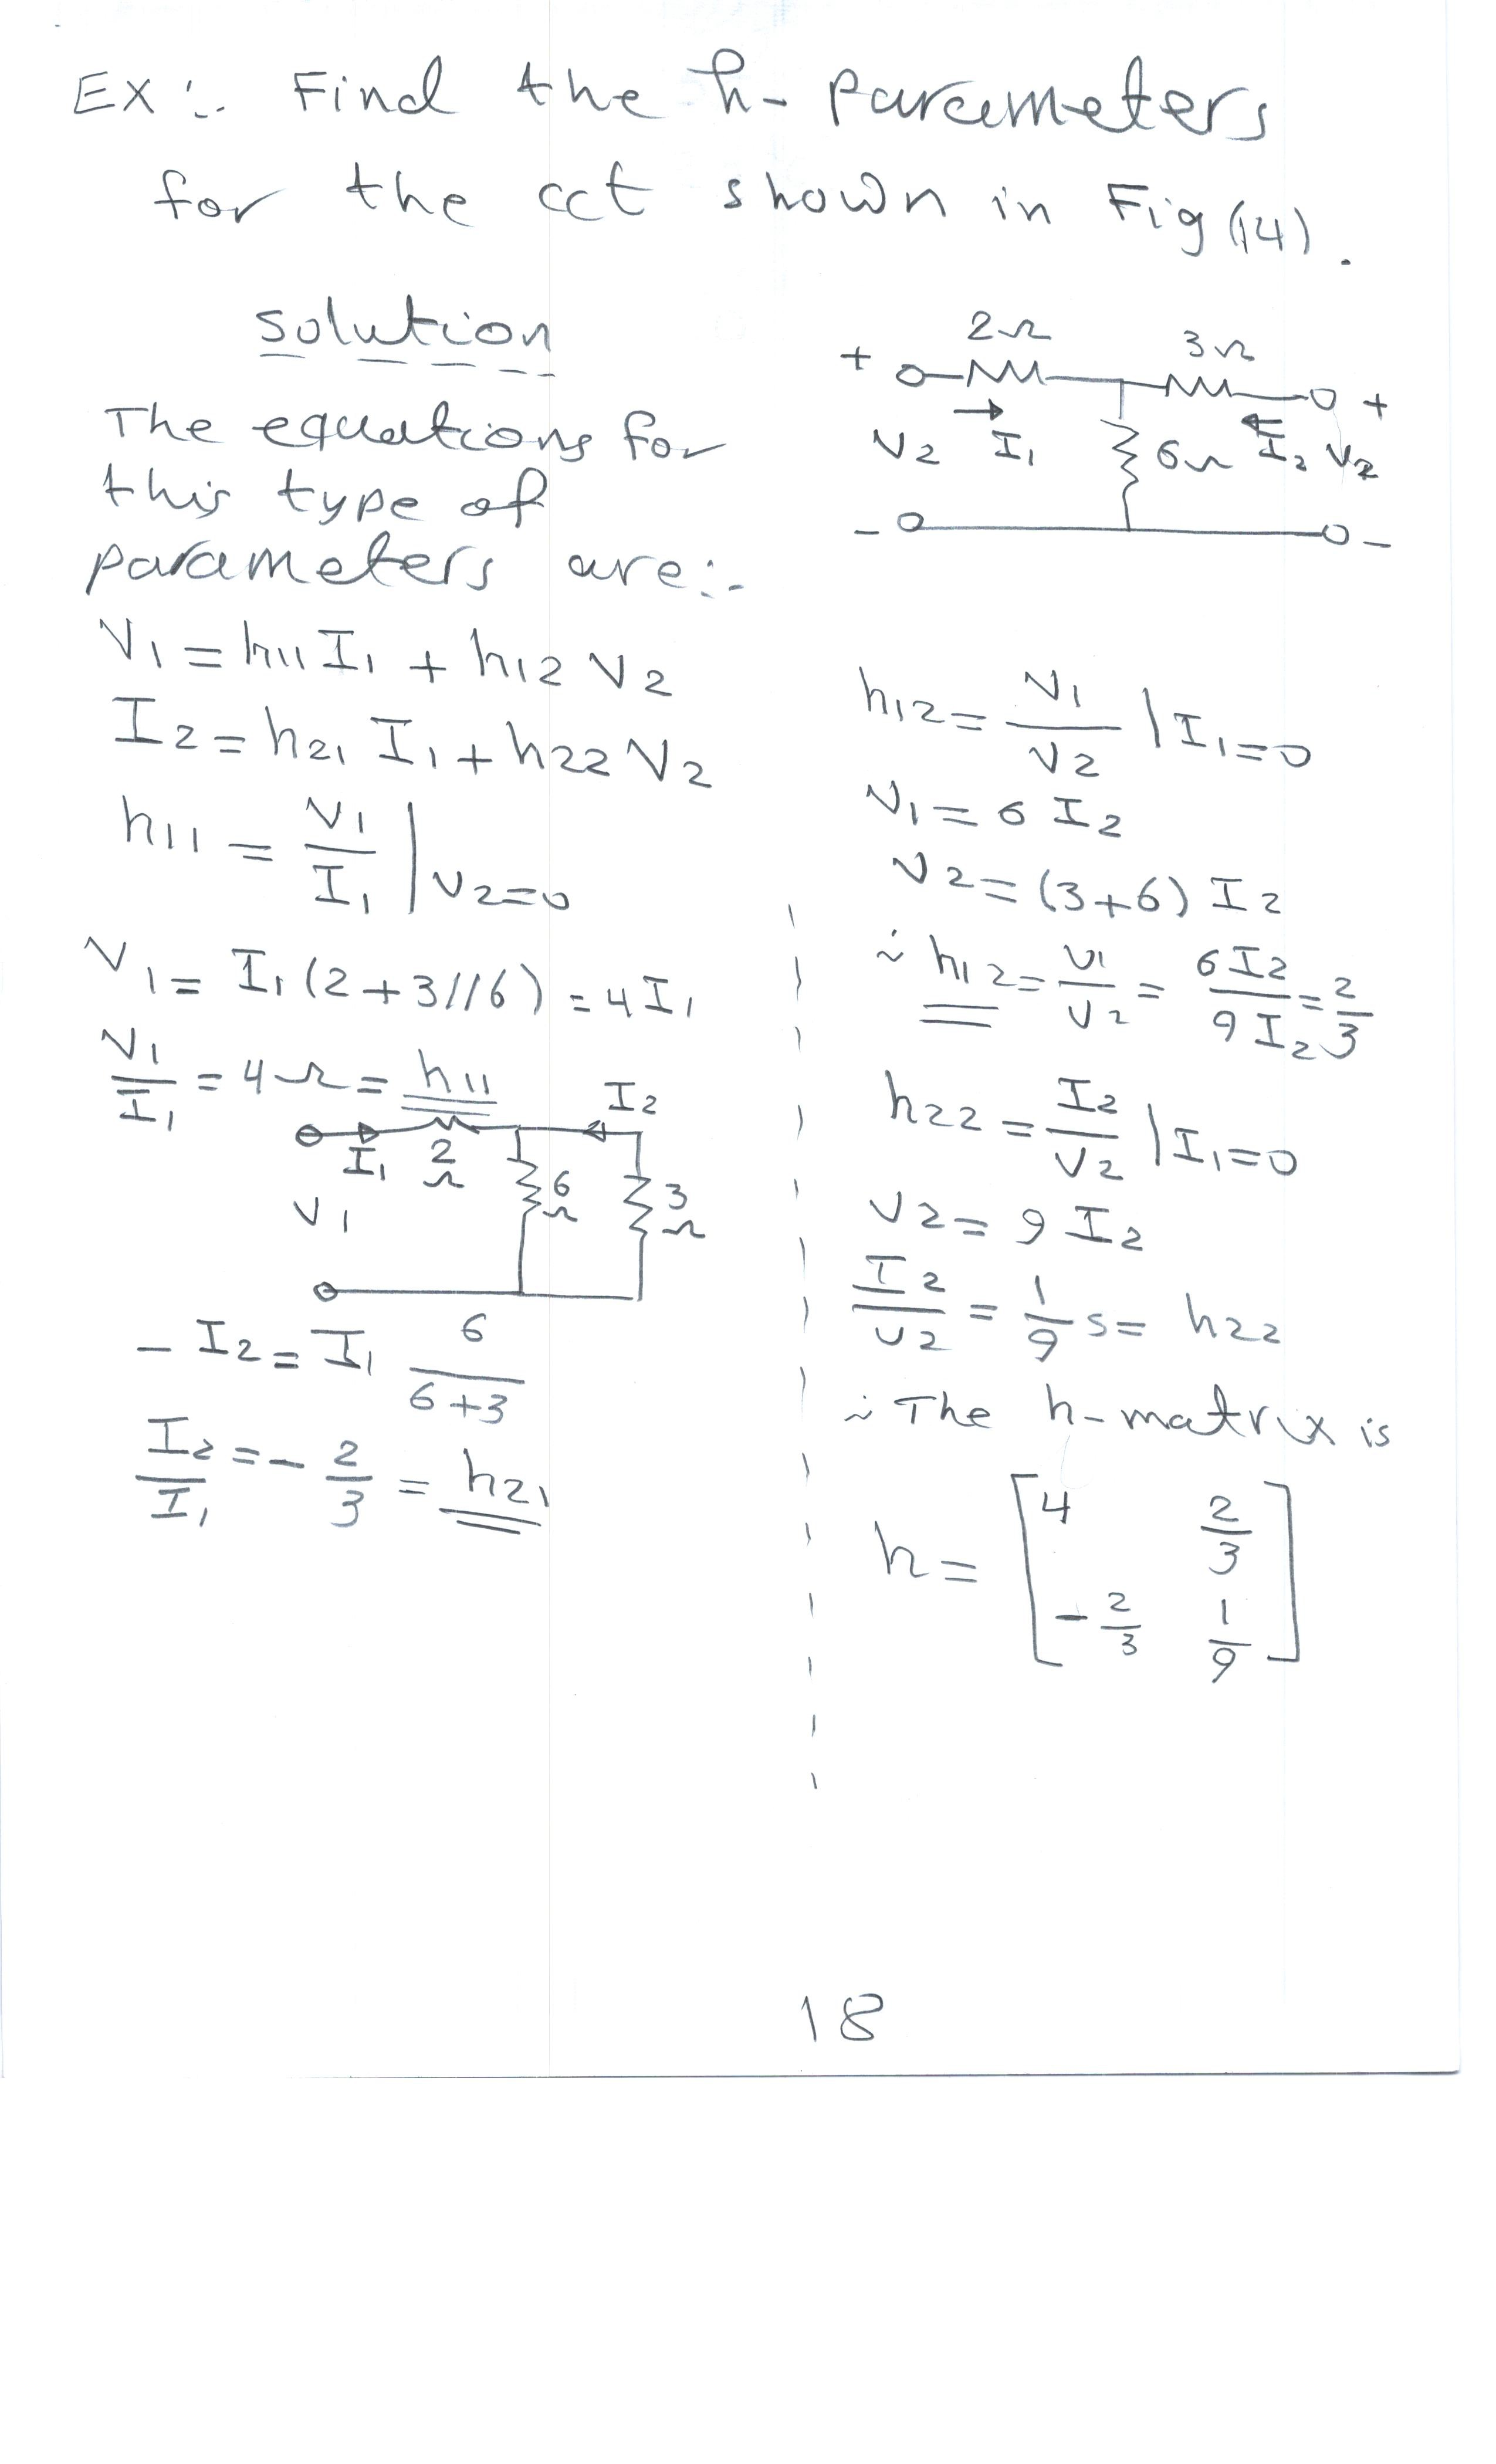 Ex:- Find the h-parameters
for the cct shown in Fig (14).
solution
The equations for
this type of
parameters are:-
V1 = h11 I1 + h12 V2
I2 = h21 I1 + h22 V2
h11 = V1/I1 | V2=0
V1 = I1 (2+3//6) = 4 I1
V1/I1 = 4 Ω = h11
I2
I1 2Ω 6Ω 3Ω
V1
- I2 = I1 6/(6+3)
I2/I1 = - 2/3 = h21
2Ω 3Ω
+ +
V2 I1 6Ω I2 V2
- -
h12 = V1/V2 | I1=0
V1 = 6 I2
V2 = (3+6) I2
∴ h12 = V1/V2 = 6 I2/9 I2 = 2/3
h22 = I2/V2 | I1=0
V2 = 9 I2
I2/V2 = 1/9 s = h22
∴ The h-matrix is
h = [4 2/3
-2/3 1/9]
18